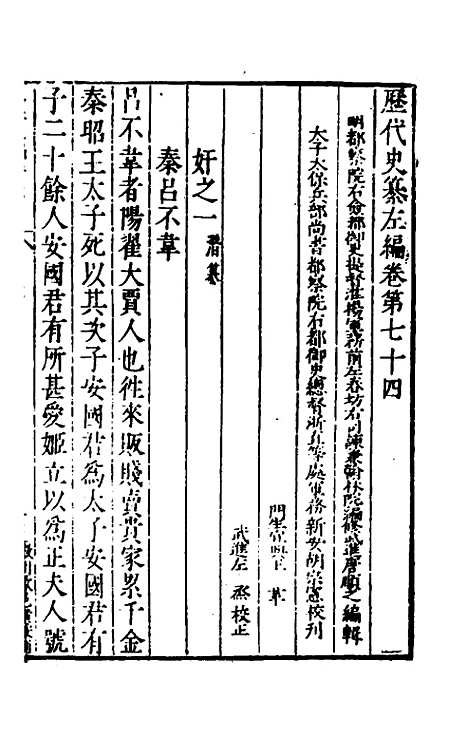 歷代史纂左編卷第七十四
明都察院右僉都御史提督淮揚軍務前左春坊右司諫兼翰林院編修武進唐順之編輯
太子太保兵部尚書都察院右都御史總督浙直等處軍務新安胡宗憲校刊
門生
武進左 烝校正
奸之一 潛纂
秦呂不韋
呂不韋者陽翟大賈人也徃來販賤賣貴家累千金
秦昭王太子死以其次子安國君爲太子安國君有
子二十餘人安國君有所甚愛姬立以爲正夫人號